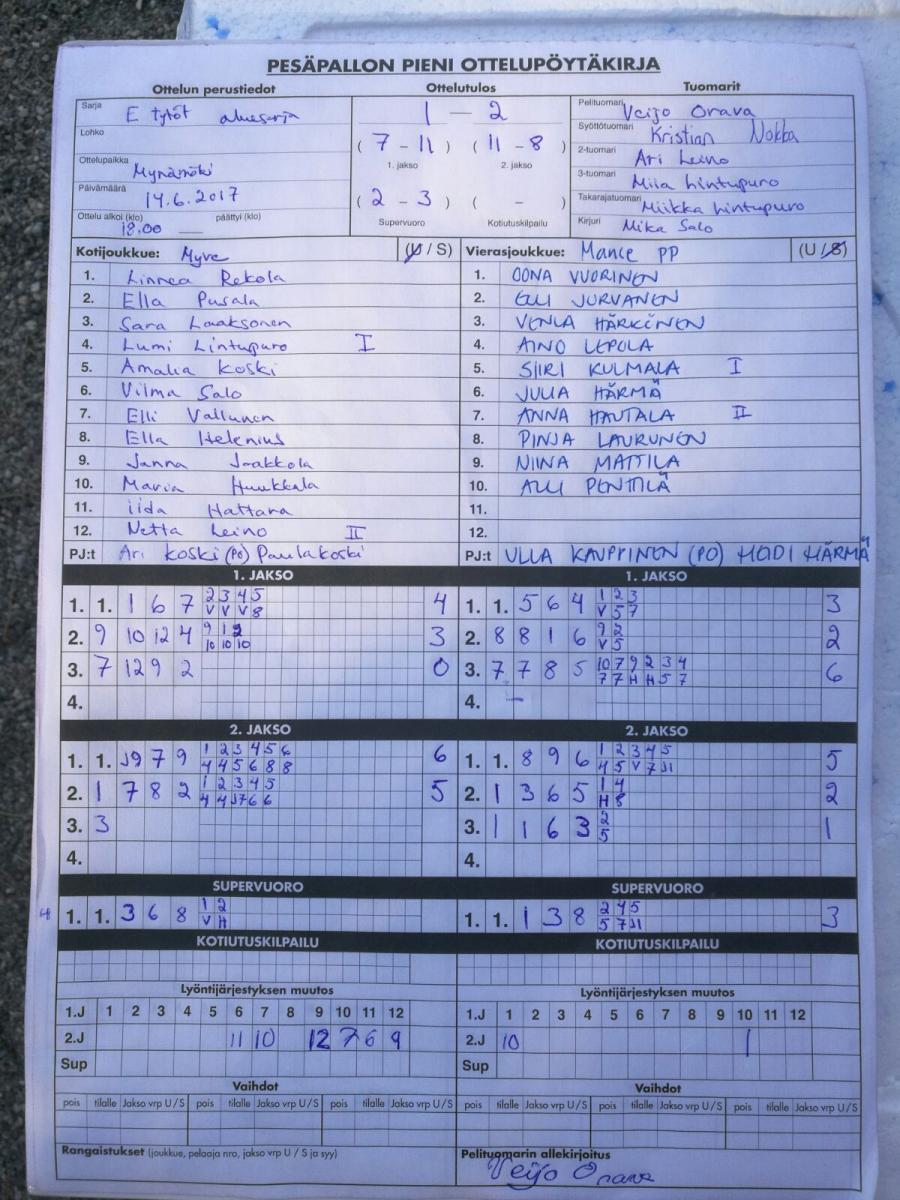 PESÄPALLON PIENI OTTELUPÖYTÄKIRJA
Ottelun perustiedot Ottelutulos Tuomarit
Sarja E tytöt aluesarja
Lohko
Ottelupaikka Mynämäki
Päivämäärä 14.6.2017
Ottelu alkoi (klo) päättyi (klo)
18.00
1 – 2
( 7 - 11 ) ( 11 - 8 )
1. jakso 2. jakso
( 2 - 3 ) ( - )
Supervuoro Kotiutuskilpailu
Pelituomari Veijo Orava
Syöttötuomari Kristian Nokka
2-tuomari Ari Leino
3-tuomari Miia Lintupuro
Takarajatuomari Miikka Lintupuro
Kirjuri Mika Salo
Kotijoukkue: Myve (U / S) Vierasjoukkue: Mance PP (U / S)
1. Linnea Rekola 1. OONA VUORINEN
2. Ella Pusala 2. ELLI JURVANEN
3. Sara Laaksonen 3. VENLA HÄRKINEN
4. Lumi Lintupuro I 4. AINO LEPOLA
5. Amalia Koski 5. SIIRI KULMALA I
6. Vilma Salo 6. JULIA HÄRMÄ
7. Elli Vallunen 7. ANNA HAUTALA II
8. Ella Helenius 8. PINJA LAURUNEN
9. Janna Jaakkola 9. NIINA MATTILA
10. Maria Huukkala 10. ALLI PENTTILÄ
11. iida Hattara 11.
12. Netta Leino II 12.
PJ:t Ari Koski (PO) Paula Koski PJ:t ULLA KAUPPINEN (PO) HEIDI HÄRMÄ
1. JAKSO 1. JAKSO
1. 1. 1 6 7 2 3 4 5 4 1. 1. 5 6 4 1 2 3 3
V V V 8 V 5 7
2. 9 10 12 4 9 1 2 3 2. 8 8 1 6 9 2 2
10 10 10 V 5
3. 7 12 9 2 0 3. 7 7 8 5 10 7 9 2 3 4 6
7 7 H H 5 7
4. 4. –
2. JAKSO 2. JAKSO
1. 1. J9 7 9 1 2 3 4 5 6 6 1. 1. 8 9 6 1 2 3 4 5 5
4 4 5 6 8 8 4 5 V 7 J1
2. 1 7 8 2 1 2 3 4 5 5 2. 1 3 6 5 1 4 2
4 4 J7 6 6 H 8
3. 3 3. 1 1 6 3 2 1
5
4. 4.
SUPERVUORO SUPERVUORO
1. 1. 3 6 8 1 2 1. 1. 1 3 8 2 4 5 3
V H 5 7 J1
KOTIUTUSKILPAILU KOTIUTUSKILPAILU
Lyöntijärjestyksen muutos Lyöntijärjestyksen muutos
1.J 1 2 3 4 5 6 7 8 9 10 11 12 1.J 1 2 3 4 5 6 7 8 9 10 11 12
2.J 11 10 12 7 6 9 2.J 10 1
Sup Sup
Vaihdot Vaihdot
pois tilalle Jakso vrp U / S pois tilalle Jakso vrp U / S pois tilalle Jakso vrp U / S pois tilalle Jakso vrp U / S pois tilalle Jakso vrp U / S pois tilalle Jakso vrp U / S
Rangaistukset (joukkue, pelaaja nro, jakso vrp U / S ja syy) Pelituomarin allekirjoitus
Veijo Orava